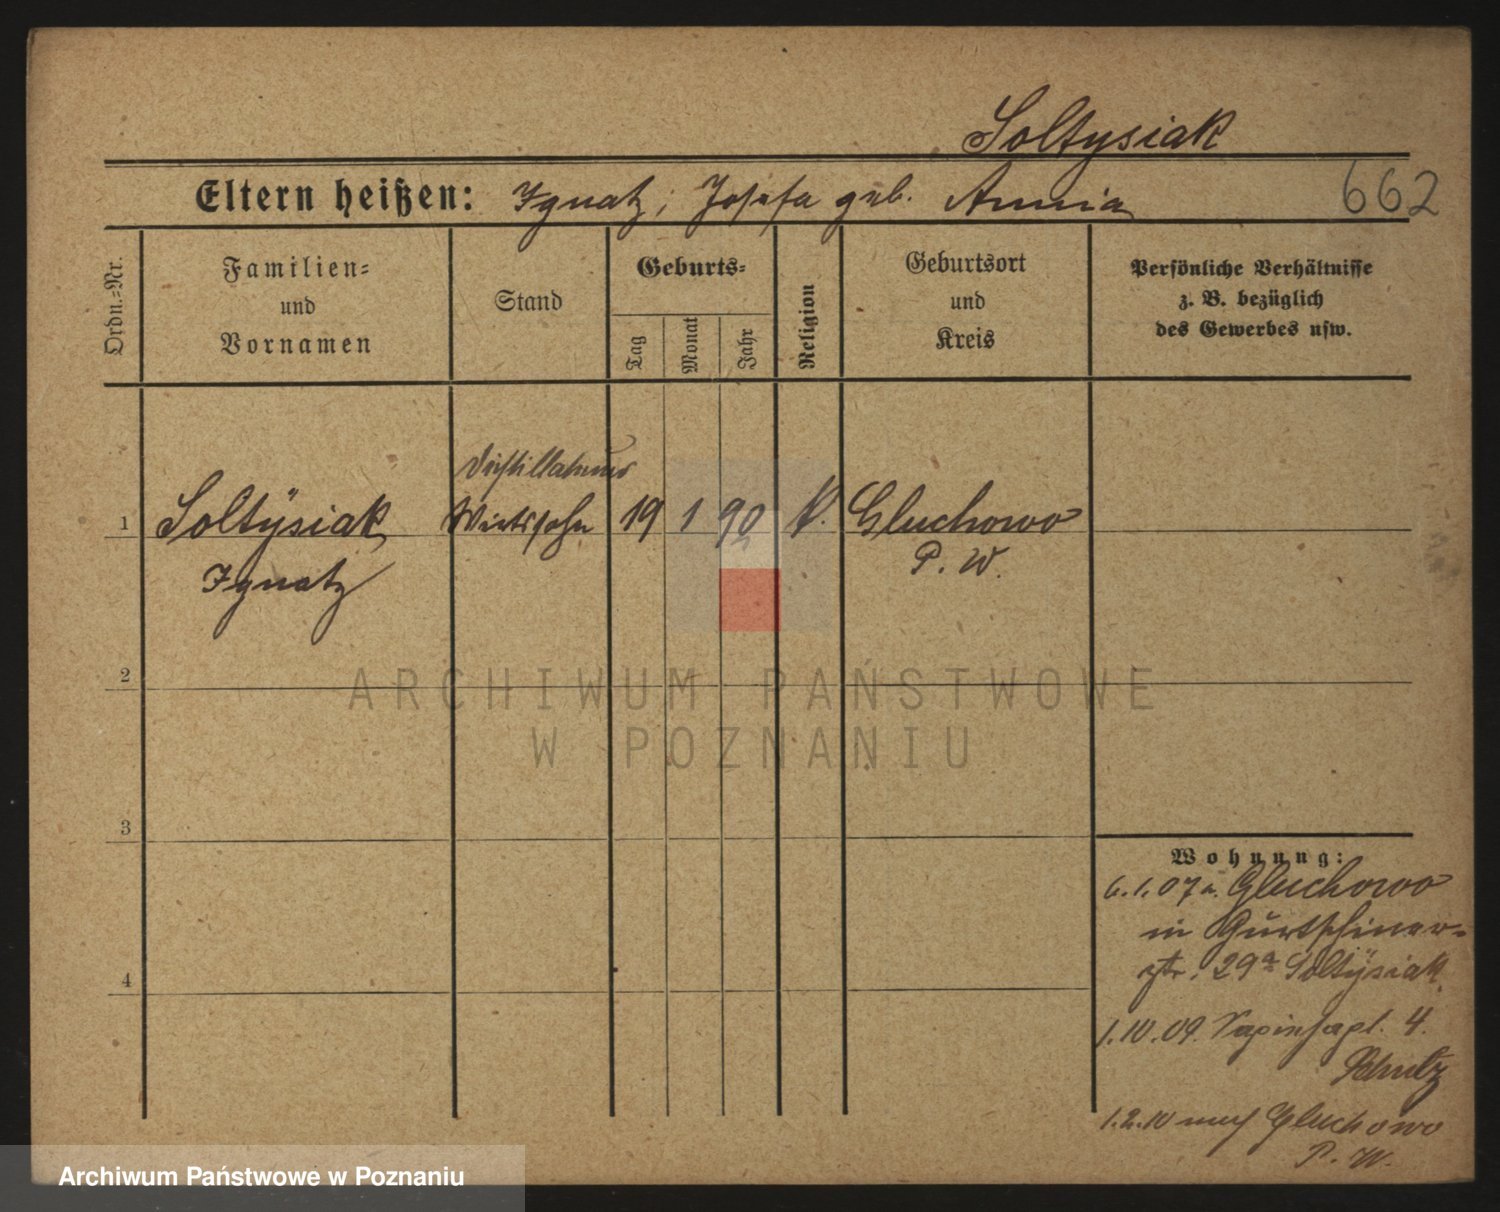 Soltysiak
Eltern heißen: Ignatz, Josefa geb. Annia
662
Ordn.=Nr.
Familien=
und
Vornamen
Stand
Geburts=
Tag
Monat
Jahr
Religion
Geburtsort
und
Kreis
Persönliche Verhältnisse
z. B. bezüglich
des Gewerbes usw.
1
Soltÿsiak
Ignatz
Wirtssohn
19
1
90
K.
Gluchowo
P. W.
2
3
4
Wohnung:
6.1.07 a. Gluchowo
in Gurtschiner=
str. 29a Soltÿsiak
1.10.09. Sapiehapl. 4.
Schulz
1.2.10 nach Gluchowo
P. W.
ARCHIWUM PAŃSTWOWE
W POZNANIU
Archiwum Państwowe w Poznaniu